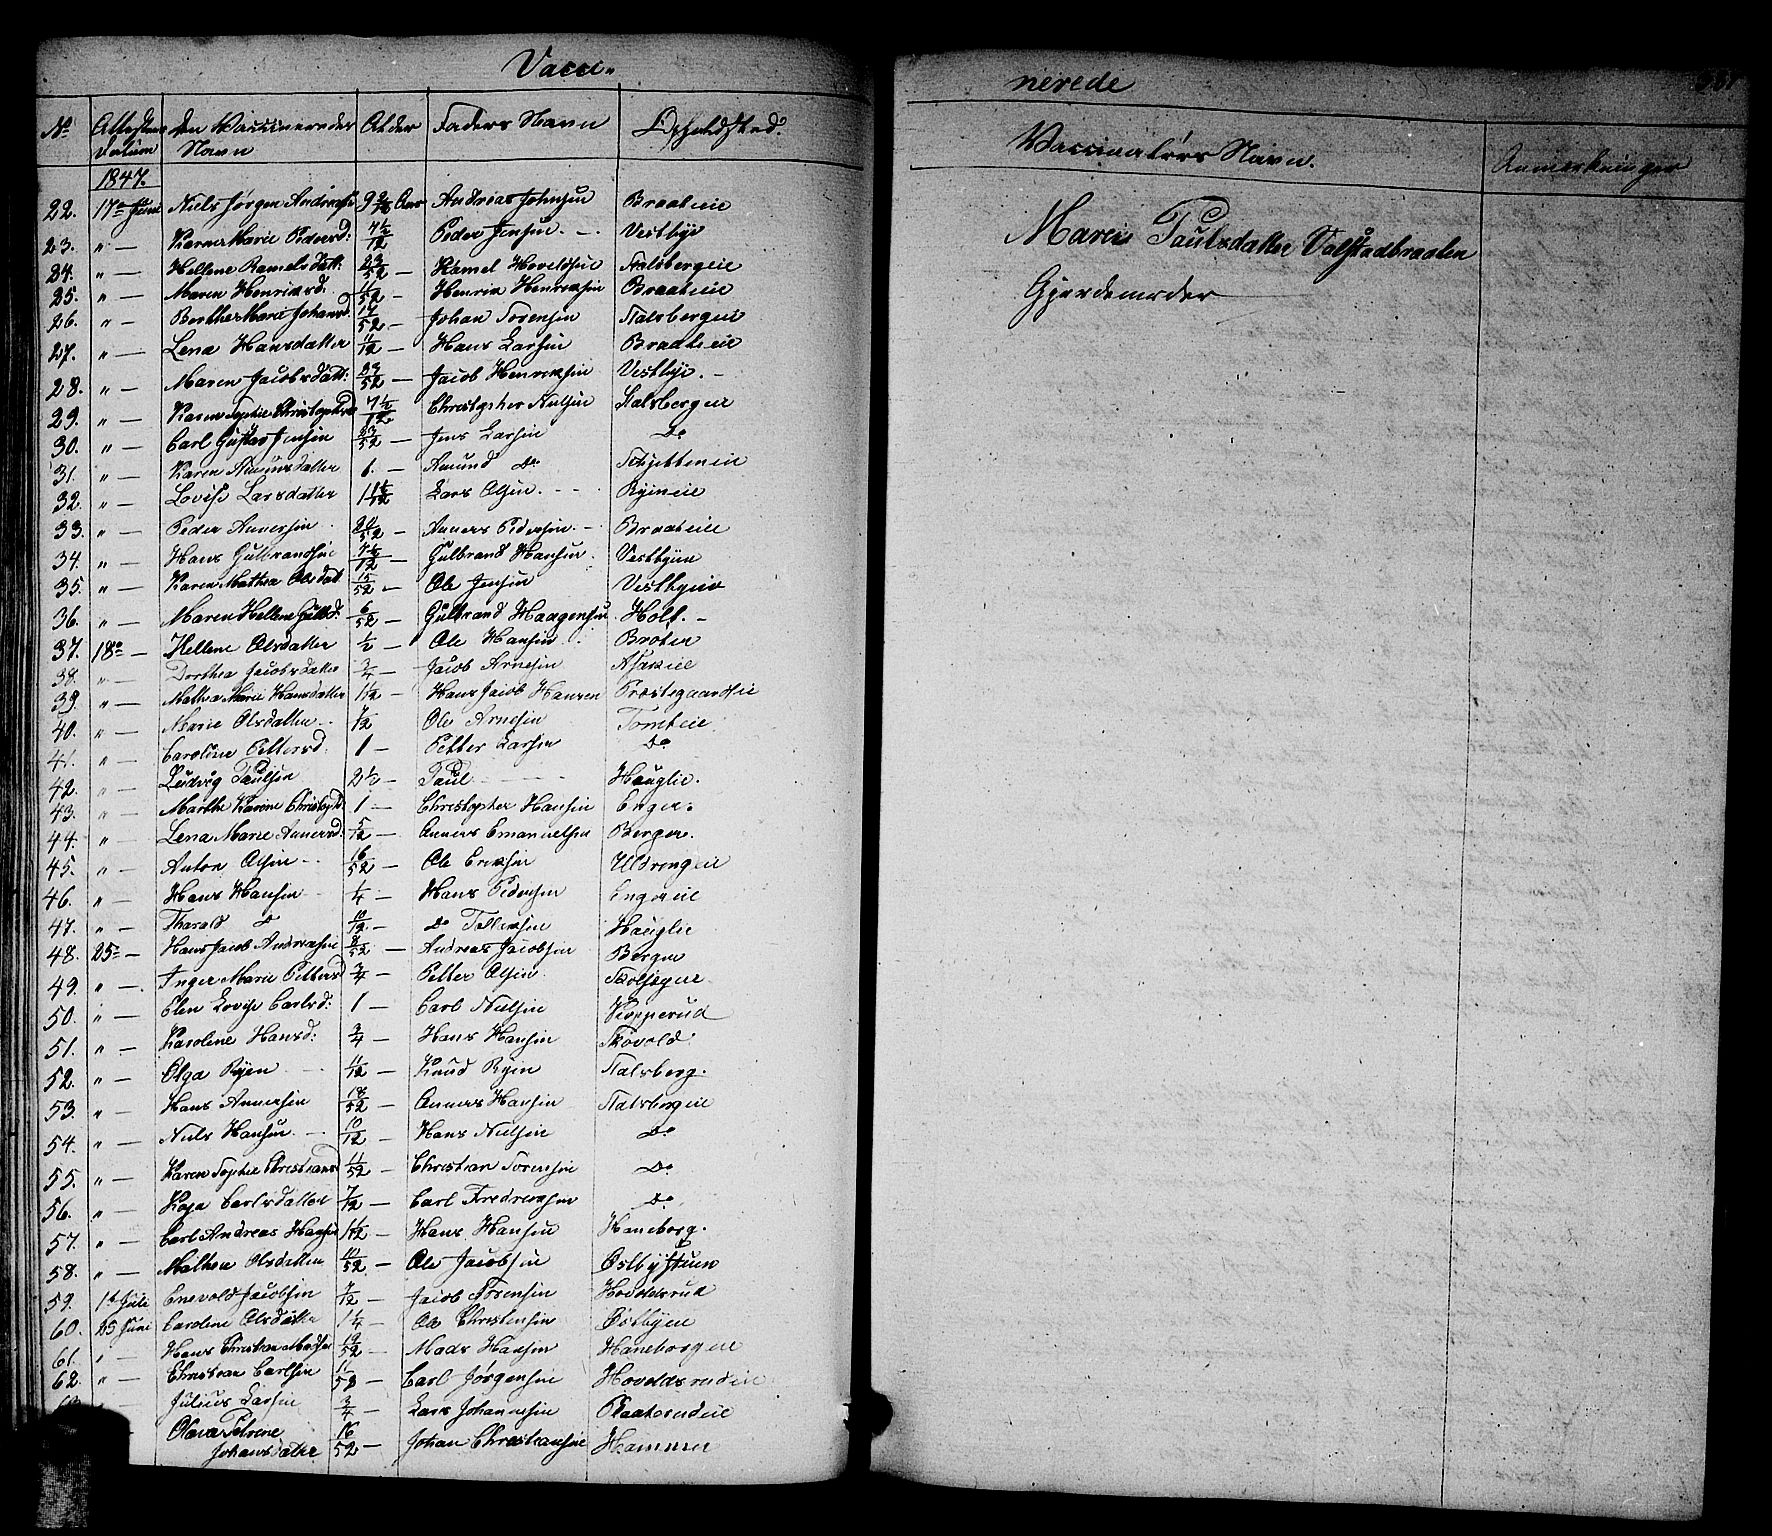 Vacci-
nerede
No Attestens Datum Den Vaccineredes Navn Alder Faders Navn Opholdsted.
Vaccinateurs Navn. Anmerkninger
1847.
22. 17de Juni Niels Jørgen Andreas Aar Andreas Johnsen Braateeie
23. " — Karen Marie Pedersd: 4½/12 Peder Jensen. — Vestbye
24. " — Hellene Ramelsdatt: 23/52 — Ramel Hovelsen Stalsbergeie
25. " — Maren Henriksd: 11/52 — Henrik Henriksen Braateeie
26. " — Berthe Marie Johansd 14/52 — Johan Sørensen Stalsbergeie
27. " — Lena Hansdatter 11/12 — Hans Larsen Braateeie
28. " — Maren Jacobsdatt: 33/52 — Jacob Henriksen Vestbye. —
29. " — Karen Sophie Christophersd 7½/12 Christopher Nielsen Stalsbergeie
30. " — Carl Gustav Jensen 23/52 — Jens Larsen Do
31. " — Karen Amundsdatter 6. — Amund Do Skjetteneie
32. " — Lovise Larsdatter Lars Olsen. Ryeneie
33. " — Peder Andersen 20/52 — Anders Pedersen — Braateeie
34. " — Hans Gulbrandsen 7½/12 — Gulbrand Hansen. Vestbyeie
35. " — Karen Mathea Olsdat 15/52 — Ole Jensen Vestbyeie
36. " — Maren Hellene Gulbd: 6/52 — Gulbrand Haagensen Holt. —
37. 18de — Hellene Olsdatter ½ — Ole Hansen Braten
38. " — Dorthea Jacobsdatter ¾ — Jacob Arnesen Asakeie
39. " — Mathea Marie Hansdatter 1½ — Hans Jacob Hansen Præstegaardseie
40. " — Marie Olsdatter — 7/12 Ole Arnesen Tomteeie
41. " — Caroline Pettersd: 1 — Petter Larsen Do
42. " — Ludvig Paulsen 2½ — Paul Hauglie.
43. " — Marthe Karine Christophd: 1 — Christopher Hansen Enger.
44. " — Lena Marie Andersd: 5/12 — Anders Emanuelsen Berger.
45. " — Anton Olsen — 16/52 — Ole Eriksen Uldrengeie
46. " — Hans Hansen ¼ — Hans Pedersen Engereie
47. " — Tharald Do 10/12 — Do Tollefsen Hauglie
48. 25de — Hans Jacob Andreasen 8/52 — Andreas Jacobsen Berger
49. " — Inger Marie Petters d ¾ — Petter Olsen
50. " — Elen Lovise Carlsd: 1 — Carl Nielsen Kopperud
51. " — Karolene Hansd: ¾ — Hans Hansen Skovold
52. " — Olga Ryen 11/12 — Knud Ryen Stalsberg.
53. " — Hans Andersen 18/52 — Anders Hansen Stalsbergeie
54. " — Niels Hansen — 10/12 — Hans Nielsen Do
55. " — Karen Sophie Christiansd 11/52 — Christian Sørensen Do
56. " — Kaja Carlsdatter 7/12 — Carl Fredriksen Do
57. " — Carl Andreas Hansen 1½ — Hans Hansen Haneborg.
58. " — Mathea Olsdatter 10/52 — Ole Jacobsen Østbystuen
59. 1ste Juli Enevold Jacobsen 7/12 — Jacob Sørensen Hovelsrud
60. 25 Juni Carolene Olsdatter 1¼ — Ole Christensen Østbyeie
61. " — Hans Christian Madsen 19/52 — Mads Hansen Haneborgeie
62. " — Christian Carlsen 11/52 — Carl Jørgensen Hovelsrudeie
Julius Larsen ¾ — Lars Johannesen Plaaterudeie
Olava Petrene
Johansdatter 16/52 — Johan Christiansen Hammer
Maren Paulsdatter Valstadbraaten
Gjordemoder